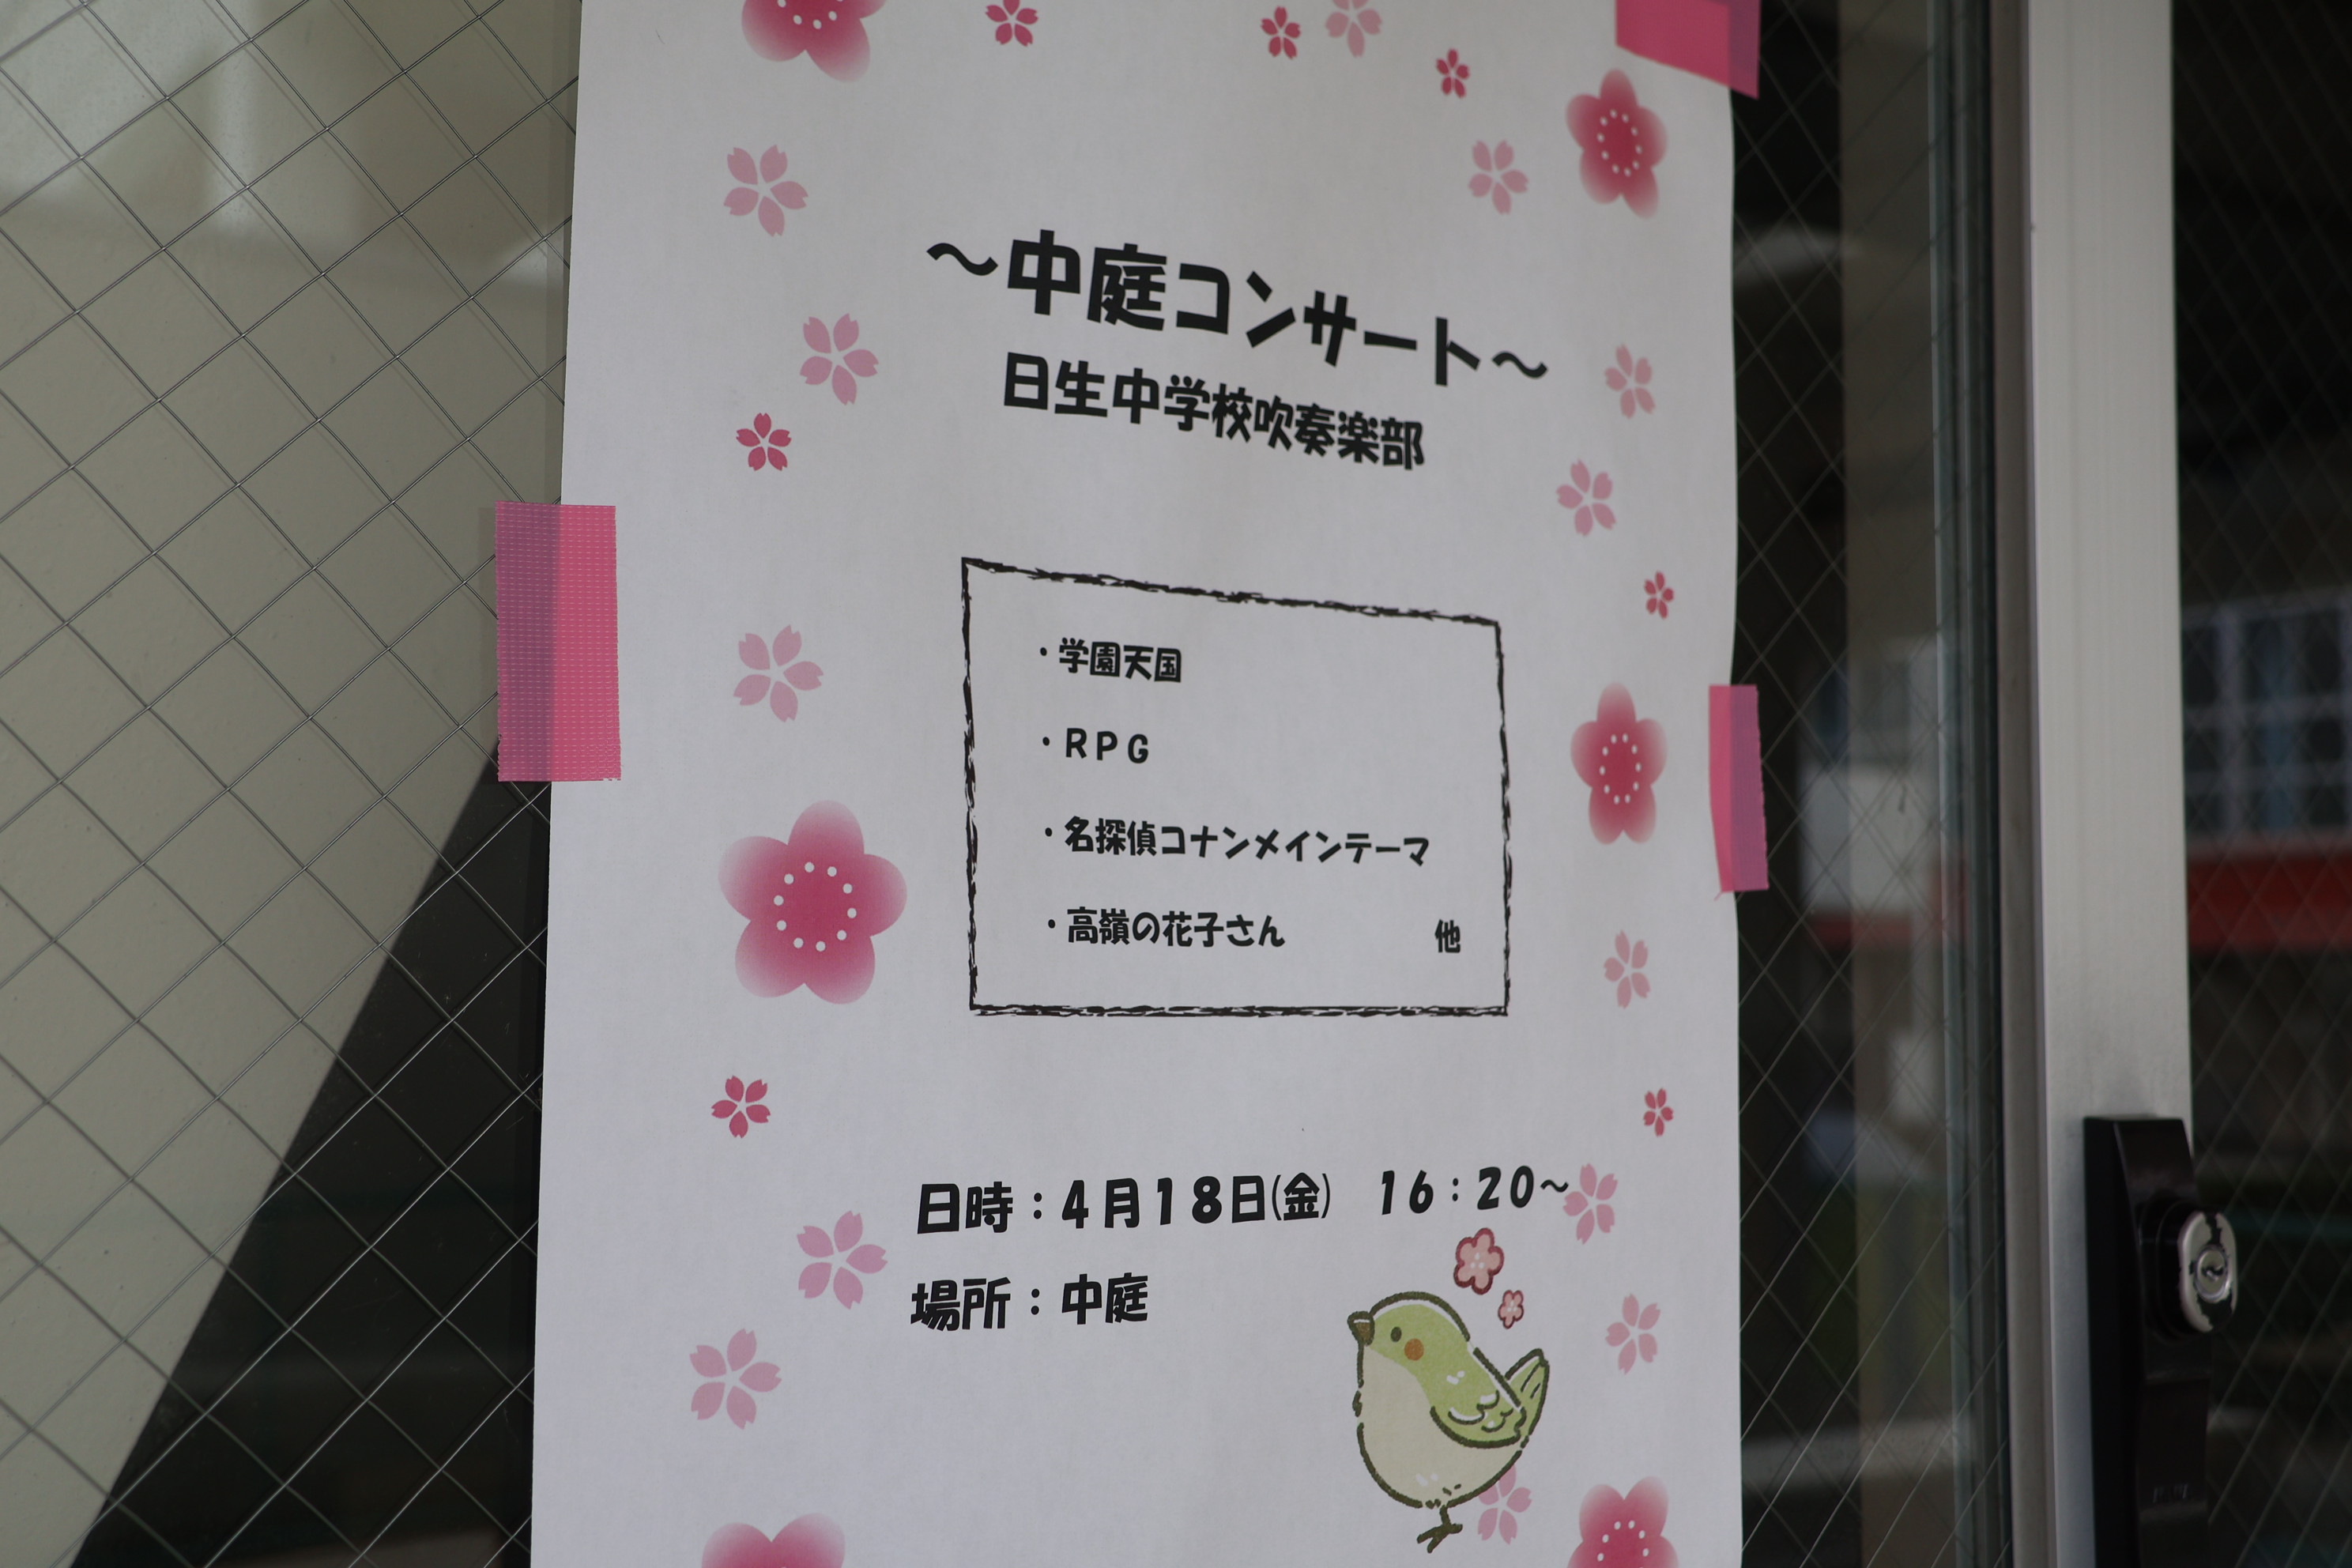 ～中庭コンサート～
日生中学校吹奏楽部
・学園天国
・RPG
・名探偵コナンメインテーマ
・高嶺の花子さん　他
日時：4月18日(金)　16：20～
場所：中庭